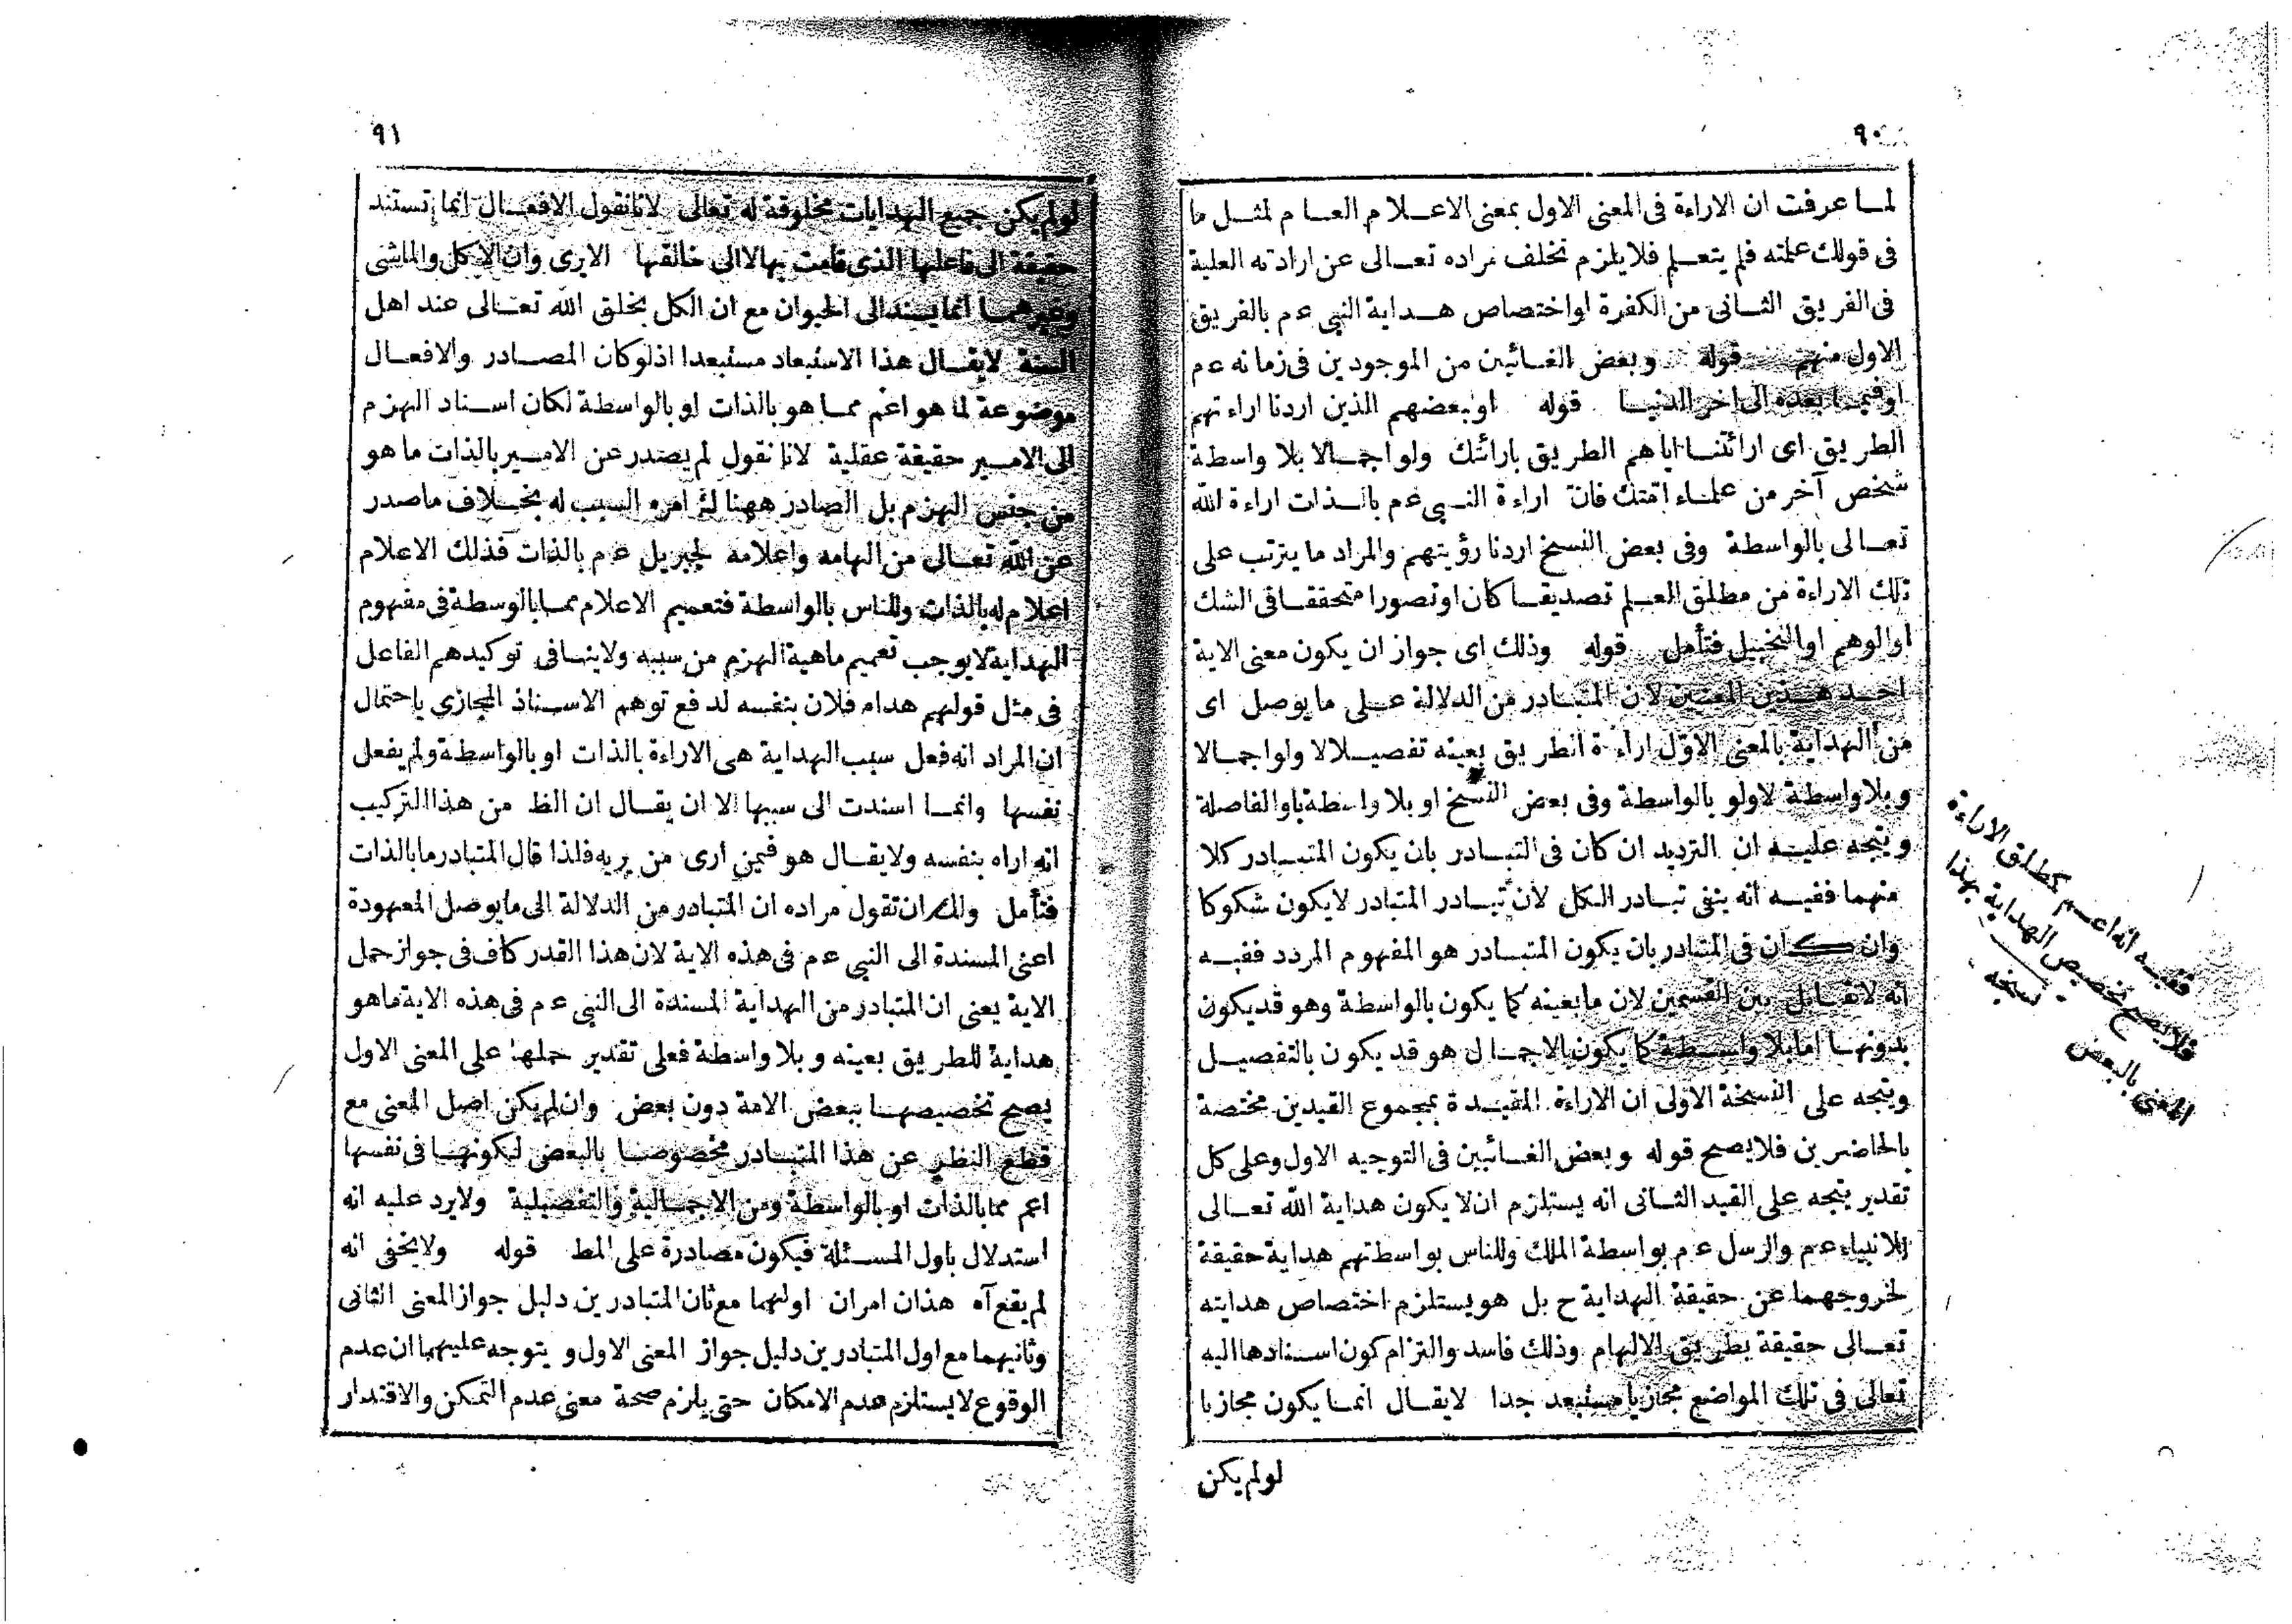 ٩٠
لما عرفت ان الاراءة فى المعنى الاول بمعنى الاعلام العام لمثل ما
فى قولك علمته فلم يتعلم فلا يلزم تخلف مراده تعالى عن ارادته العلية
فى الفريق الثانى من الكفرة او اختصاص هداية النبى عم بالفريق
الاول منهم قوله وبعض الغائبين من الموجودين فى زمانه عم
او فيما بعده الى اخر الدنيا قوله او بعضهم الذين اردنا اراءتهم
الطريق اى ارائتنا اياهم الطريق بارائتك ولو اجمالا بلا واسطة
شخص آخر من علماء امتك فان اراءة النبى عم بالذات اراءة الله
تعالى بالواسطة وفى بعض النسخ اردنا رؤيتهم والمراد ما يترتب على
تلك الاراءة من مطلق العلم تصديقا كان او تصورا متحققا فى الشك
او الوهم او التخييل فتأمل قوله وذلك اى جواز ان يكون معنى الاية
احد هذين المعنيين لان المتبادر من الدلالة على ما يوصل اى
من الهداية بالمعنى الاول اراءة الطريق بعينه تفصيلا لا ولو اجمالا
وبلا واسطة لا ولو بالواسطة وفى بعض النسخ او بلا واسطة باو الفاصلة
ويتجه عليه ان الترديد ان كان فى التبادر بان يكون المتبادر كلا
منهما ففيه انه ينفى تبادر الكل لان تبادر المتبادر لا يكون شكوكا
وان كان فى المتبادر بان يكون المتبادر هو المفهوم المردد ففيه
انه لا تقابل بين القسمين لان ما بعينه كما يكون بالواسطة وهو قد يكون
بدونها اما بلا واسطة كما يكون بالاجمال هو قد يكون بالتفصيل
ويتجه على النسخة الاولى ان الاراءة المقيدة بمجموع القيدين مختصة
بالحاضرين فلا يصح قوله وبعض الغائبين فى التوجيه الاول وعلى كل
تقدير يتجه على القيد الثانى انه يستلزم ان لا يكون هداية الله تعالى
للانبياء عم والرسل عم بواسطة الملك وللناس بواسطتهم هداية حقيقة
لخروجهما عن حقيقة الهداية ح بل هو يستلزم اختصاص هدايته
تعالى حقيقة بطريق الالهام وذلك فاسد والتزام كون اسنادها اليه
تعالى فى تلك المواضع مجازيا مستبعد جدا لا يقال انما يكون مجازيا
لو لم يكن
ففيه انه اعم كمطلق الاراءة
فلا يصح تخصيص الهداية بهذا
المعنى بالبعض نسخه
٩١
لو لم يكن جميع الهدايات مخلوقة له تعالى لانا نقول الافعال انما تستند
حقيقة الى فاعلها الذى قامت بها لا الى خالقها الا يرى وان الاكل والماشى
وغيرهما انما يسند الى الحيوان مع ان الكل بخلق الله تعالى عند اهل
السنة لا يقال هذا الاستبعاد مستبعدا اذ لو كان المصادر والافعال
موضوعة لما هو اعم مما هو بالذات او بالواسطة لكان اسناد الهزم
الى الامير حقيقة عقلية لانا نقول لم يصدر عن الامير بالذات ما هو
من جنس الهزم بل الصادر ههنا امره السبب له بخلاف ما صدر
عن الله تعالى من الهامه واعلامه لجبريل عم بالذات فذلك الاعلام
اعلام له بالذات وللناس بالواسطة فتعميم الاعلام مما بالوسطة فى مفهوم
الهداية لا يوجب تعميم ماهية الهزم من سببه ولا ينافى توكيدهم الفاعل
فى مثل قولهم هداه فلان بنفسه لدفع توهم الاسناد المجازى باحتمال
ان المراد انه فعل سبب الهداية هى الاراءة بالذات او بالواسطة ولم يفعل
نفسها وانما اسندت الى سببها الا ان يقال ان الظ من هذا التركيب
انه اراه بنفسه ولا يقال هو فيمن ارى من يريه فلذا قال المتبادر ما بالذات
فتأمل ولك ان تقول مراده ان المتبادر من الدلالة الى ما يوصل المعهودة
اعنى المسندة الى النبى عم فى هذه الاية لان هذا القدر كاف فى جواز حمل
الاية يعنى ان المتبادر من الهداية المسندة الى النبى عم فى هذه الاية ما هو
هداية للطريق بعينه وبلا واسطة فعلى تقدير حملها على المعنى الاول
يصح تخصيصها ببعض الامة دون بعض وان لم يكن اصل المعنى مع
قطع النظر عن هذا المتبادر مخصوصا بالبعض لكونها فى نفسها
اعم مما بالذات او بالواسطة ومن الاجمالية والتفصيلية ولا يرد عليه انه
استدلال باول المسئلة فيكون مصادرة على المط قوله ولا يخفى انه
لم يقع آه هذان امران اولهما مع ثان المتبادرين دليل جواز المعنى الثانى
وثانيهما مع اول المتبادرين دليل جواز المعنى الاول ويتوجه عليهما ان عدم
الوقوع لا يستلزم عدم الامكان حتى يلزم صحة معنى عدم التمكن والاقتدار